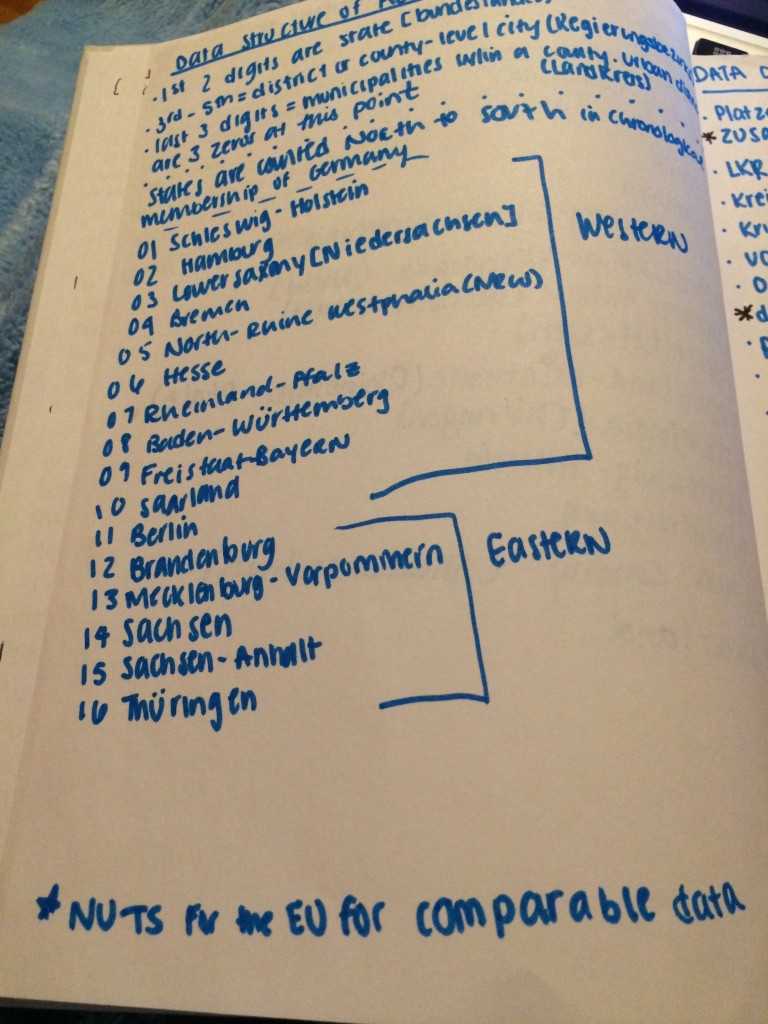 DATA Structure of
· 1st 2 digits are state (Bundesländer
· 3rd - 5th = district or county-level city (Regierungsbezirk
· last 3 digits = municipalities within a county. urban
are 3 zeros at this point (Landkreis)
· states are counted North to South in chronological
membership of Germany
01 Schleswig - Holstein
02 Hamburg
03 Lower Saxony [Niedersachsen]
04 Bremen
05 Norrh-Rhine Westphalia (NRW)
06 Hesse
07 Rheinland-Pfalz
08 Baden-Württemberg
09 Freistaat-Bayern
10 Saarland
11 Berlin
12 Brandenburg
13 Mecklenburg-Vorpommern
14 Sachsen
15 Sachsen-Anhalt
16 Thüringen
WESTERN
EASTERN
* NUTS for the EU for comparable data
DATA